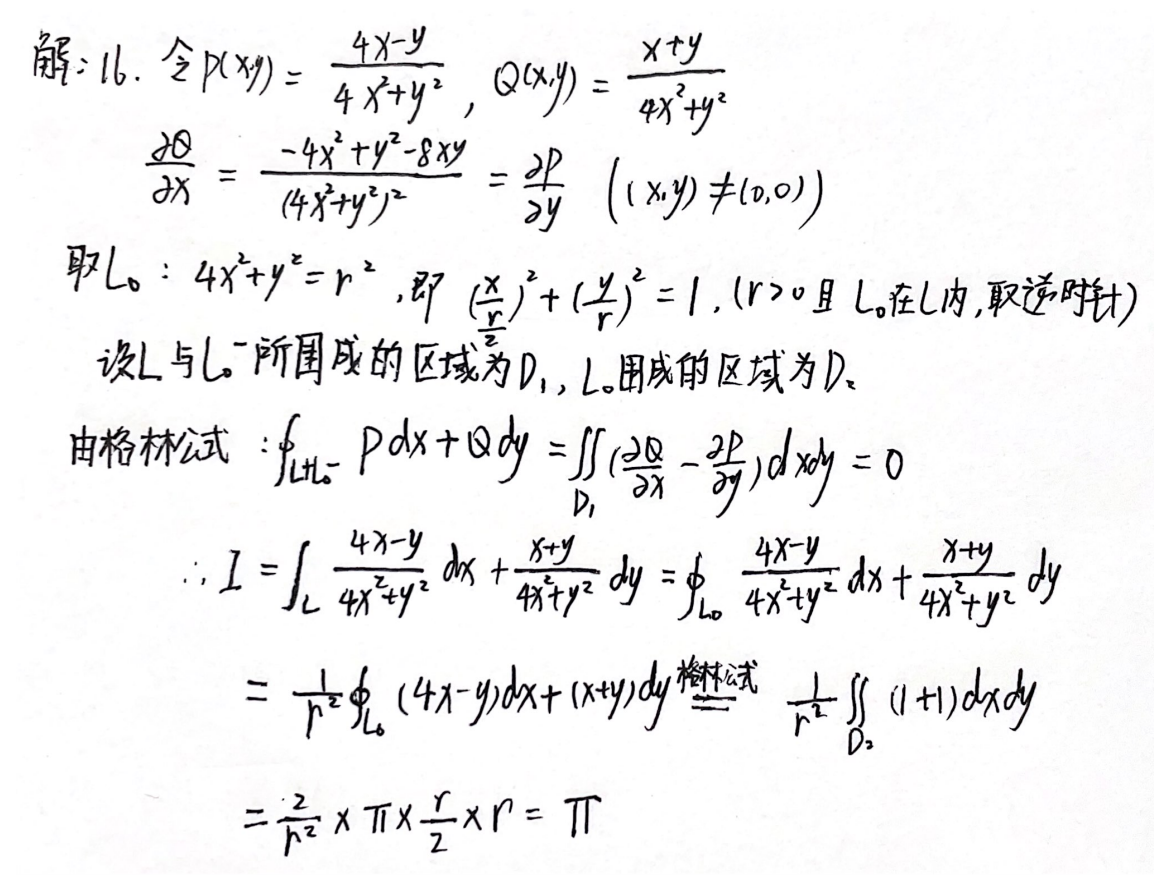 解: 16. 令 P(x,y) = \frac{4x-y}{4x^2+y^2}, Q(x,y) = \frac{x+y}{4x^2+y^2}
\frac{∂Q}{∂x} = \frac{-4x^2+y^2-8xy}{(4x^2+y^2)^2} = \frac{∂P}{∂y} ((x,y) ≠ (0,0))
取L_0 : 4x^2+y^2 = r^2, 即 (\frac{x}{\frac{r}{2}})^2 + (\frac{y}{r})^2 = 1. (r>0 且 L_0在L内, 取逆时针)
设L与L_0^-所围成的区域为D_1, L_0围成的区域为D_2
由格林公式: ∮_{L+L_0^-} Pdx+Qdy = ∬_{D_1} (\frac{∂Q}{∂x} - \frac{∂P}{∂y})dxdy = 0
∴ I = ∫_L \frac{4x-y}{4x^2+y^2} dx + \frac{x+y}{4x^2+y^2} dy = ∮_{L_0} \frac{4x-y}{4x^2+y^2} dx + \frac{x+y}{4x^2+y^2} dy
= \frac{1}{r^2} ∮_{L_0} (4x-y)dx+(x+y)dy \overset{格林公式}{=} \frac{1}{r^2} ∬_{D_2} (1+1)dxdy
= \frac{2}{r^2} × π × \frac{r}{2} × r = π